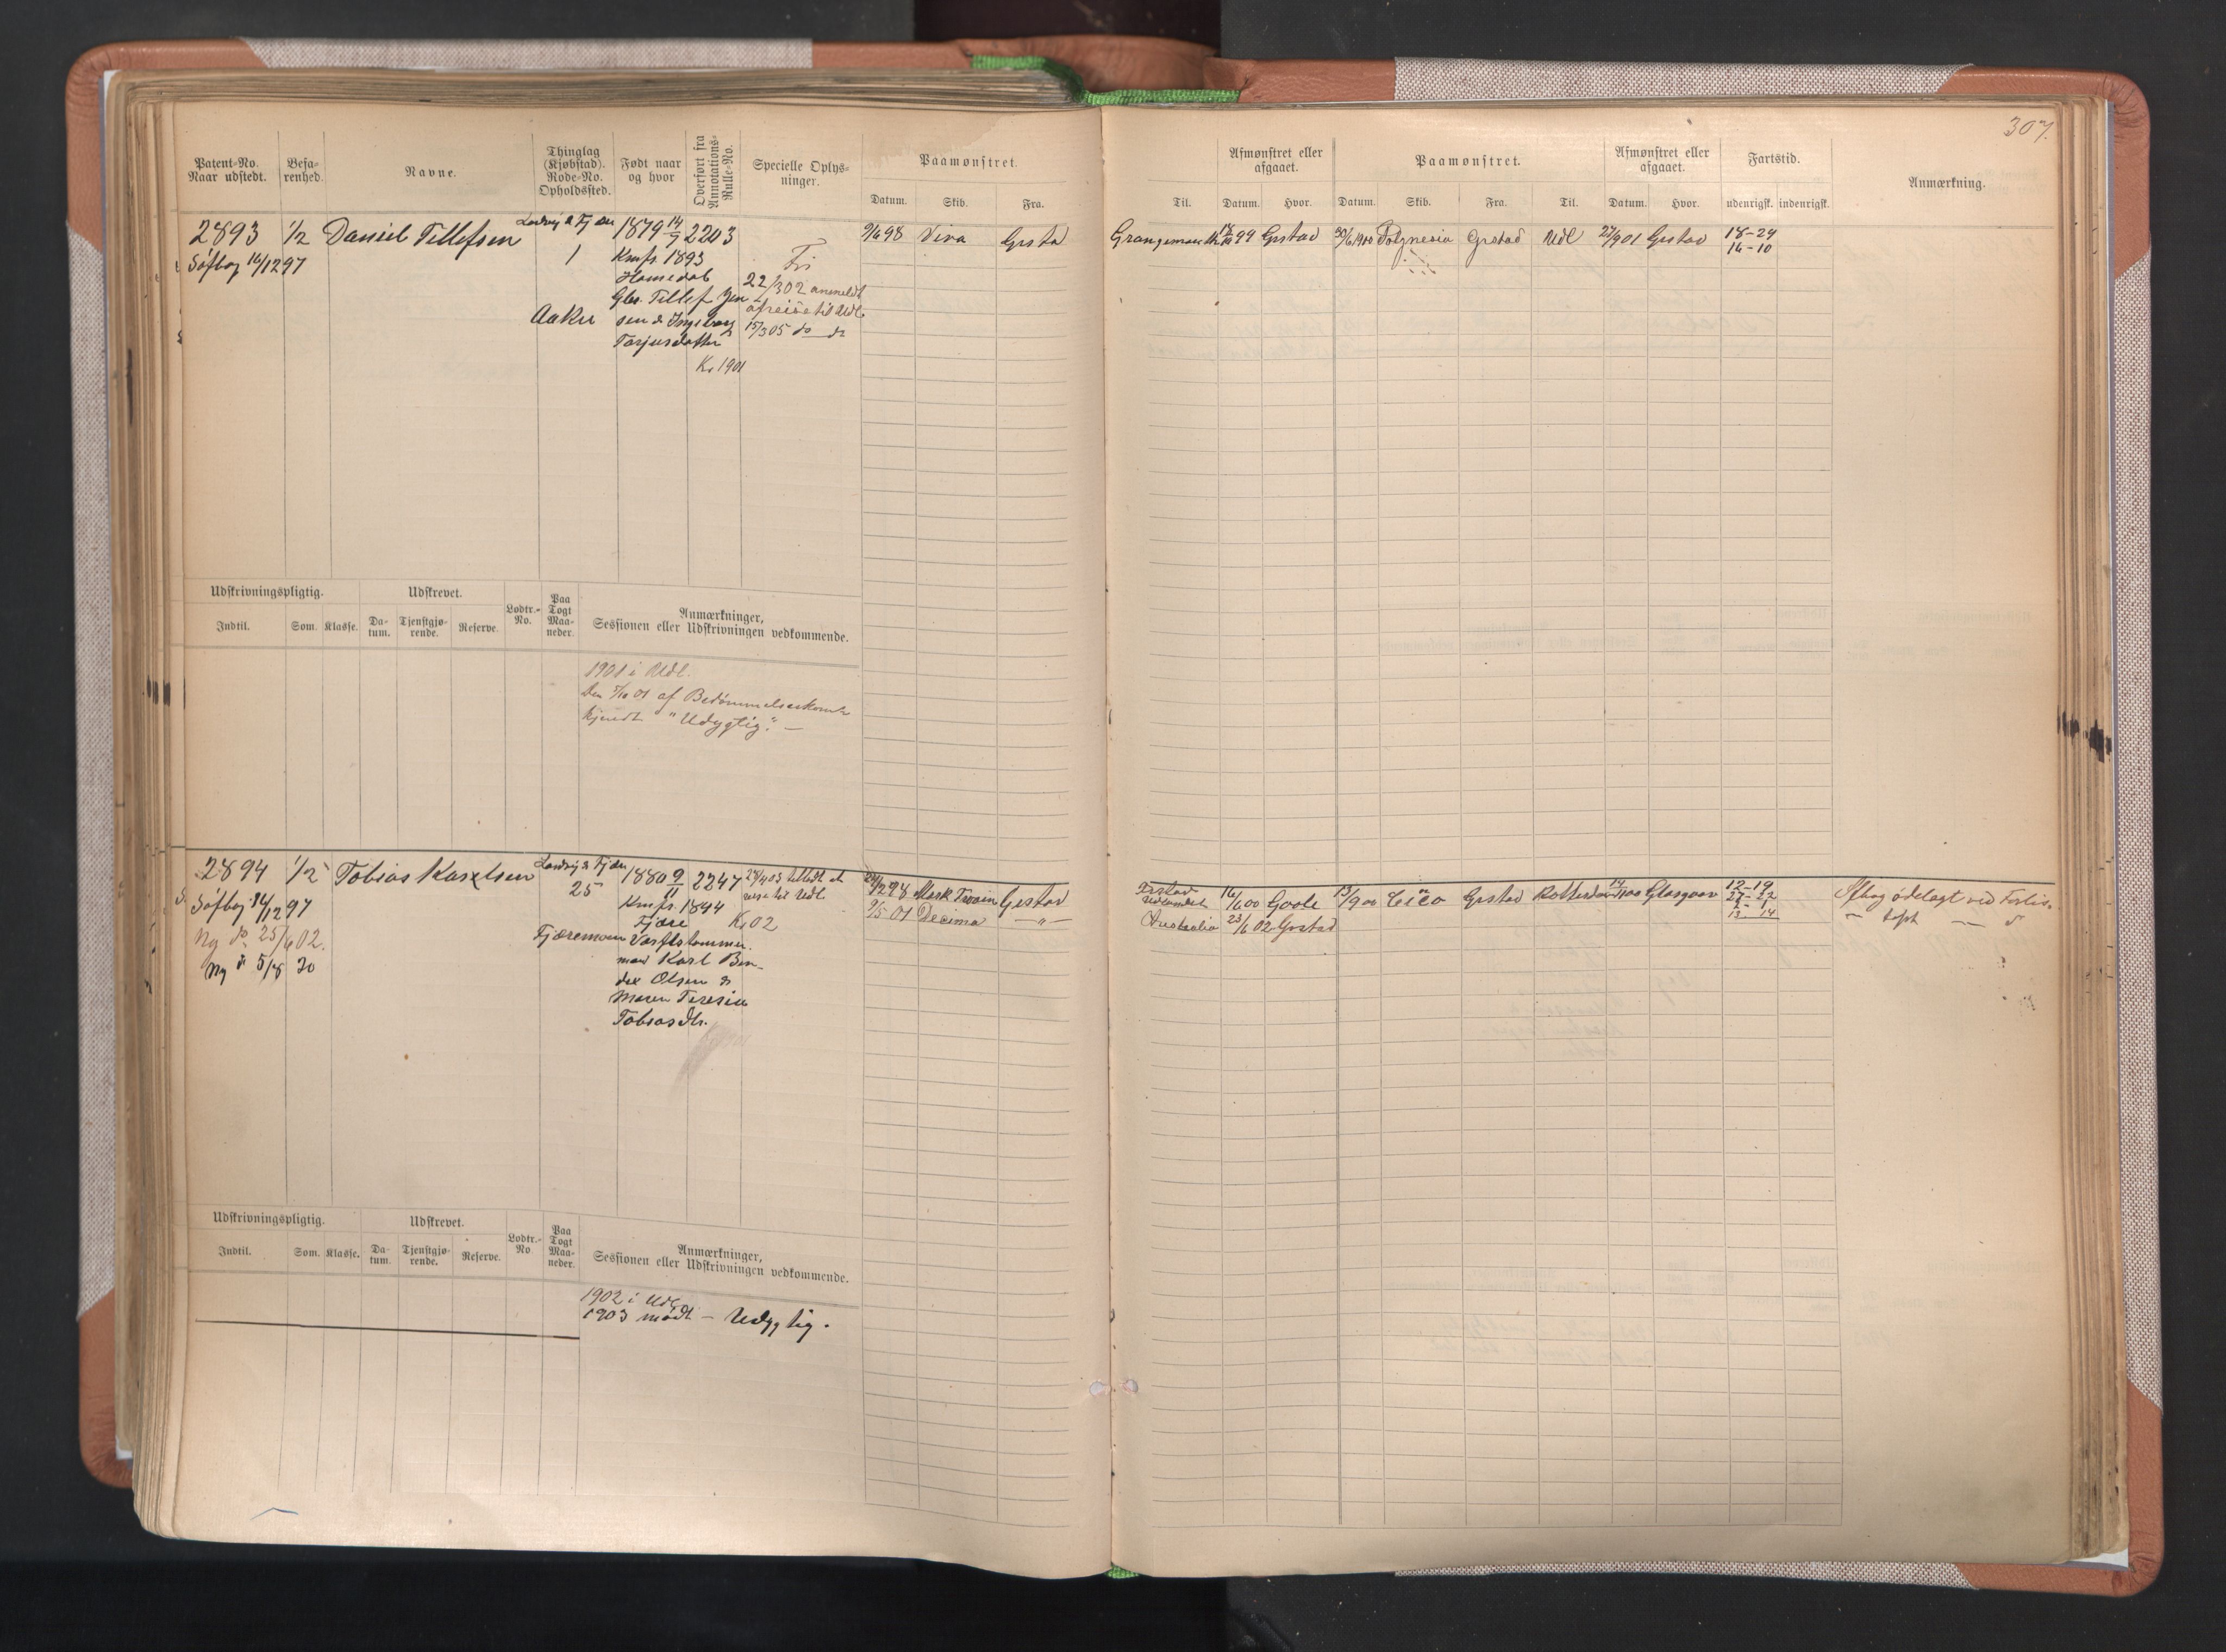 307.
Patent-No. Naar udstedt.
Befarenhed.
Navne.
Thinglag (Kjøbstad). Rode-No. Opholdssted.
Født naar og hvor
Overført fra Annotations-Rulle-No.
Specielle Oplysninger.
Paamønstret.
Datum. Skib. Fra.
Til.
Afmønstret eller afgaaet.
Datum. Hvor.
Paamønstret.
Datum. Skib. Fra. Til.
Afmønstret eller afgaaet.
Datum. Hvor.
Fartstid.
udenrigsk. indenrigsk.
Anmærkning.
2893 1/2 Daniel Tellefsen
Søfbog 16/12 97
1
Aaker
1879 14/9 2203
Konfr. 1893
Homedal
Tellef Jen
sen & Ingeborg
Tarjusdatter
K. 1901
Fri
22/3 02 anmeldt
afreise til Udl.
15/3 05 do do
9/6 98 Viva Grstad
Grangemouth 18/10 99 Grstad 30/6 1900 Polynesia Grstad Udl 27/9 01 Grstad 18-29
14-10
Udskrivningspligtig.
Indtil. Som. Klasse.
Udskrevet.
Datum. Tjenstgjørende. Reserve.
Lodtr.-No.
Paa Togt Maaneder.
Anmærkninger,
Sessionen eller Udskrivningen vedkommende.
1901 i Udl.
Den 7/10 01 af Bedømmelseskom
kjendt "Udygtig". —
2894 1/2 Tobias Karlsen
Søfbog 14/12 97
Ny do 25/6 02.
Ny do 5/8 20
25
Fjæremoen
1880 9/11 2247
Konfr. 1894
Fjære K. 02
Værftstømmer
mand Karl Ben
dix Olsen &
Maren Teresia
Tobiasdtr.
Mark Twain Grstad
9/5 01 Decima — " —
Grstad
Udlandet 16/6 00 Goole 13/9 00 Cico Grstad Rotterdam Glasgow 12-19
Australia 23/6 02 Grstad
13 14
Afbog ødelagt ved Forlis.
Udskrivningspligtig.
Indtil. Som. Klasse.
Udskrevet.
Datum. Tjenstgjørende. Reserve.
Lodtr.-No
Paa Togt Maaneder.
Anmærkninger,
Sessionen eller Udskrivningen vedkommende.
1902 i Udl
1903 mødt — Udygtig.